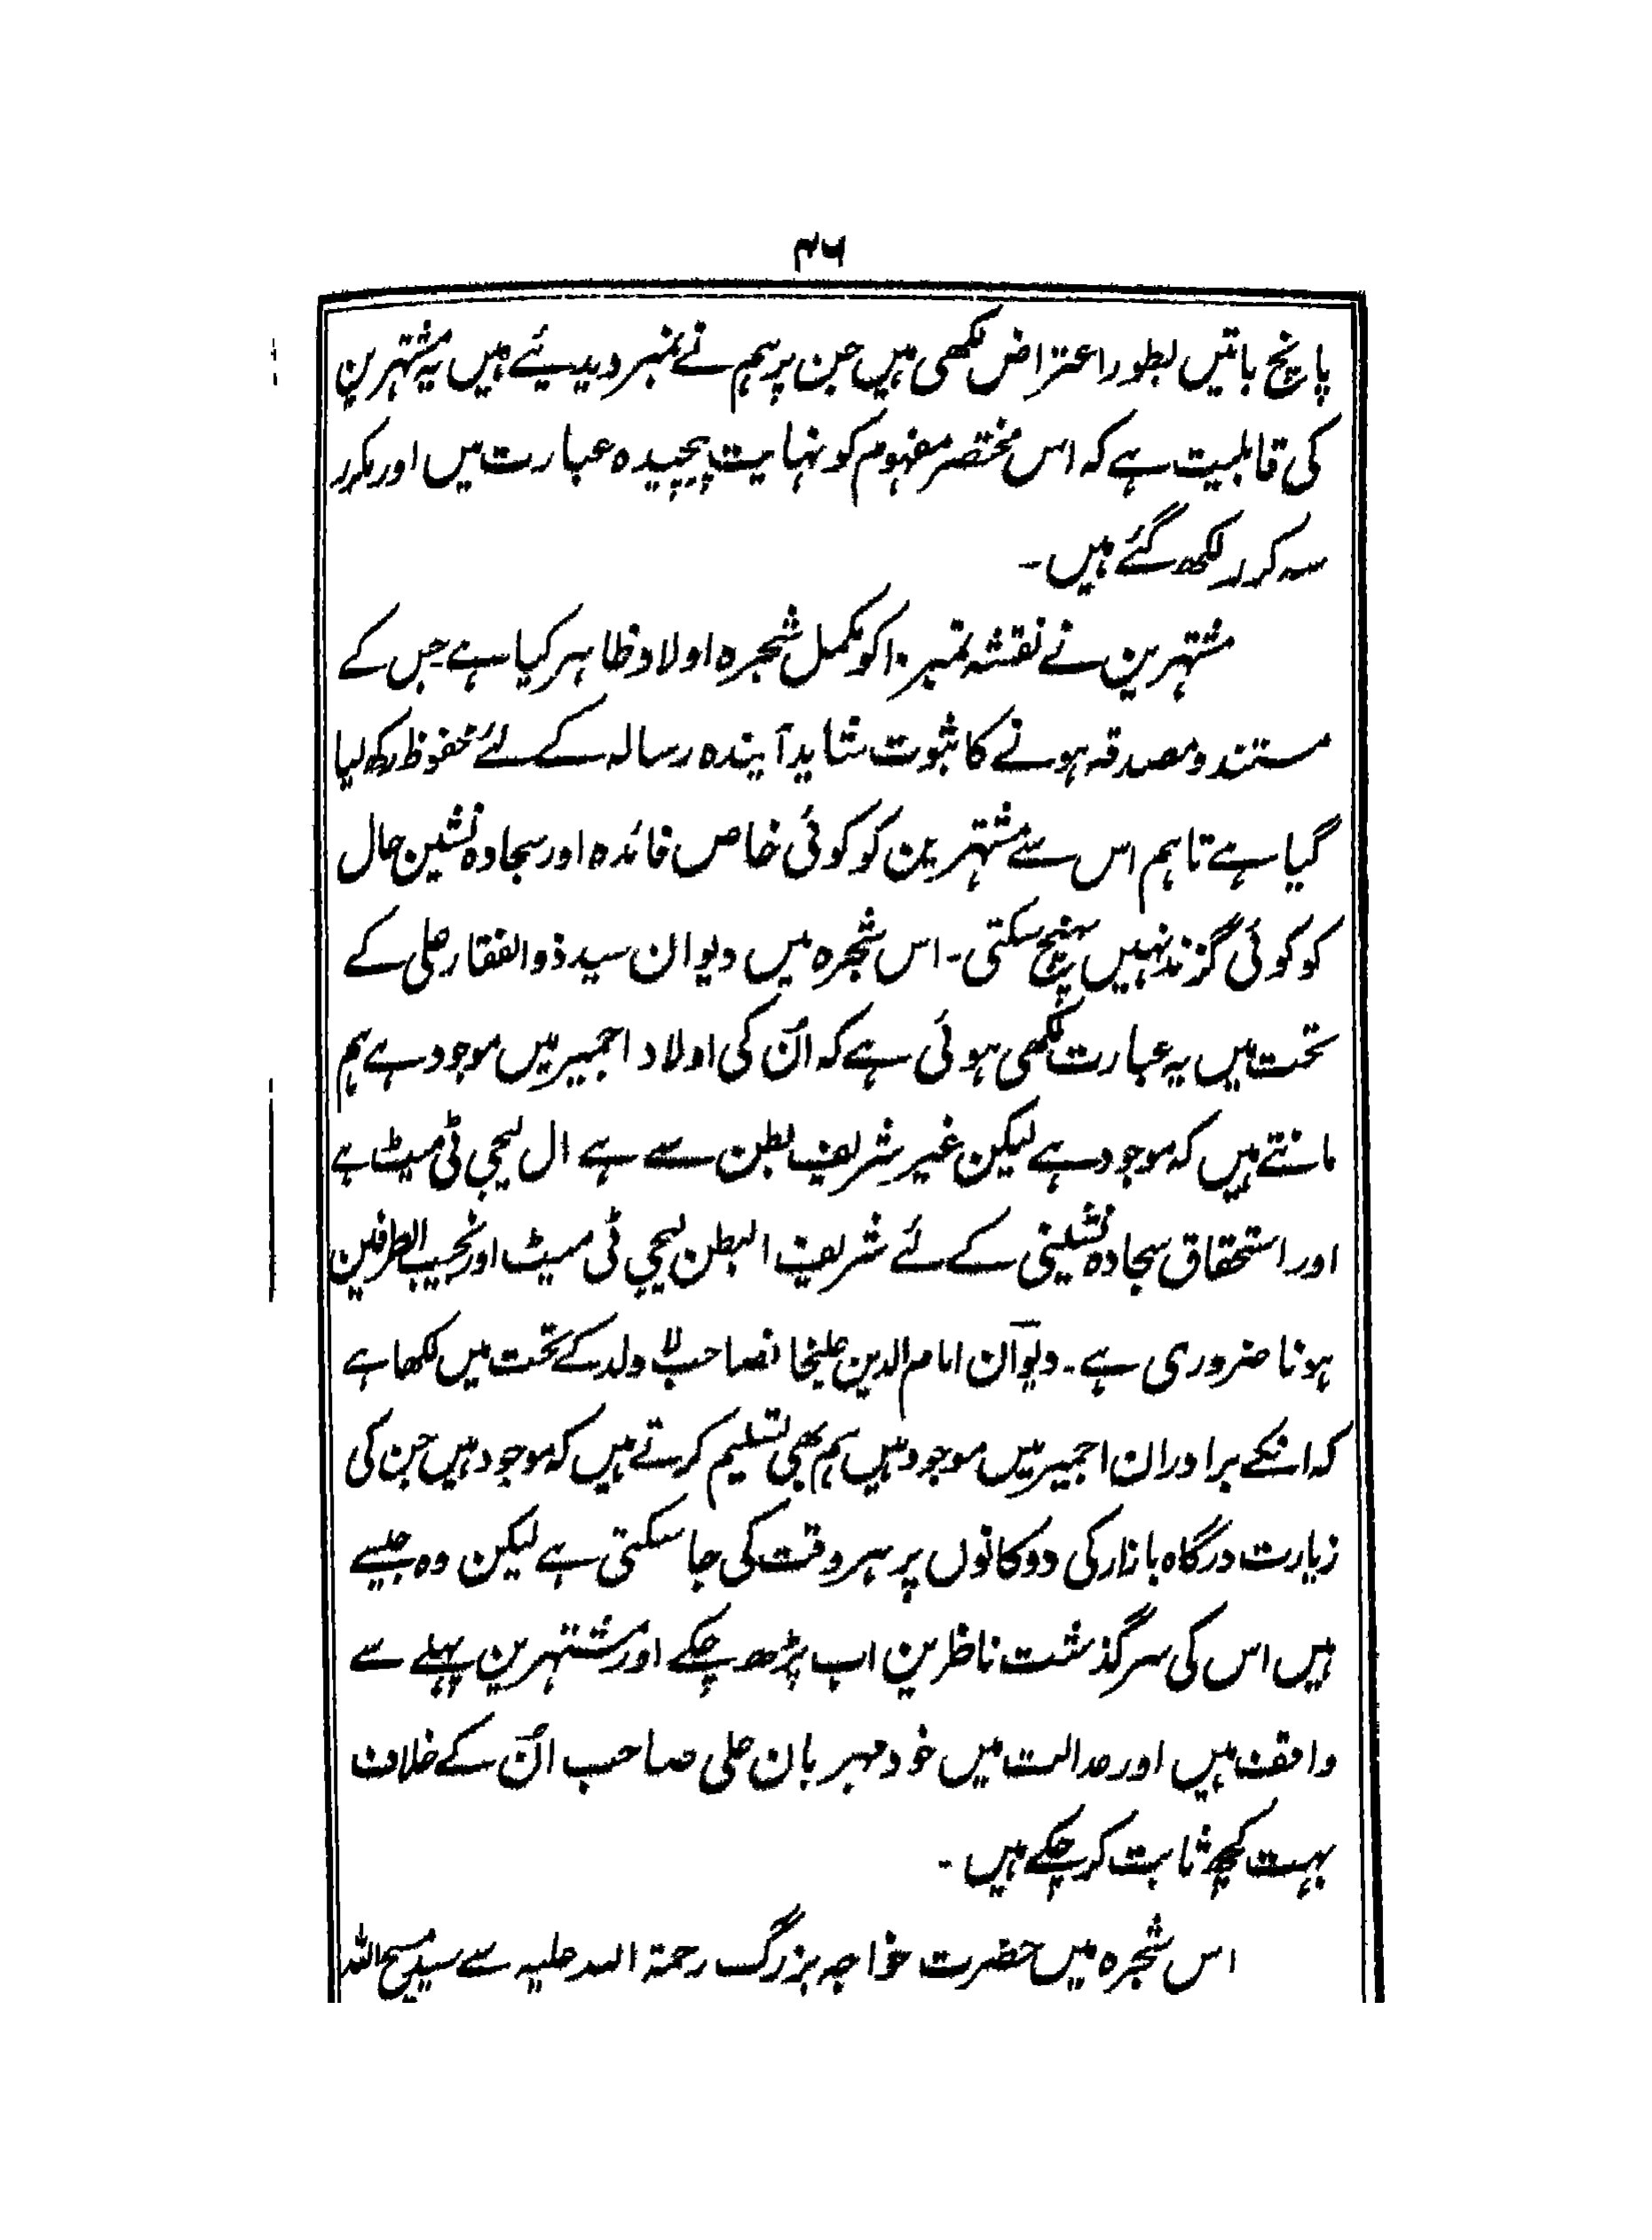 ۴۶
پانچ باتیں بطور اعتراض لکھی ہیں جن پر ہم نے نمبر دیدیئے ہیں یہ مشتہرین
کی قابلیت ہے کہ اس مختصر مفہوم کو نہایت پیچیدہ عبارت میں اور مکرر
سہ کرر لکھ گئے ہیں۔
مشتہرین نے نقشہ نمبر ۱۰ کو مکمل شجرہ اولاد ظاہر کیا ہے جس کے
مستند و مصدقہ ہونے کا ثبوت شاید آیندہ رسالہ کے لئے محفوظ رکھ لیا
گیا ہے تاہم اس سے مشتہرین کو کوئی خاص فائدہ اور سجادہ نشین حال
کو کوئی گزند نہیں پہنچ سکتی۔ اس شجرہ میں دیوان سید ذوالفقار علی کے
تحت میں یہ عبارت لکھی ہوئی ہے کہ اُن کی اولاد اجمیر میں موجود ہے ہم
مانتے ہیں کہ موجود ہے لیکن غیر شریف بطن سے ہے ال لیجی ٹی میٹ ہے
اور استحقاق سجادہ نشینی کے لئے شریف البطن لیجی ٹی میٹ اور نجیب الطرفین
ہونا ضروری ہے۔ دیوان امام الدین علیخانصاحب لا ولد کے تحت میں لکھا ہے
کہ انکے برادران اجمیر میں موجود ہیں ہم بھی تسلیم کرتے ہیں کہ موجود ہیں جن کی
زیارت درگاہ بازار کی دوکانوں پر ہر وقت کی جا سکتی ہے لیکن وہ جیسے
ہیں اس کی سرگذشت ناظرین اب پڑھ چکے اور مشتہرین پہلے سے
واقف ہیں اور عدالت میں خود مہربان علی صاحب اُن کے خلاف
بہت کچھ ثابت کر چکے ہیں۔
اس شجرہ میں حضرت خواجہ بزرگ رحمۃ اللہ علیہ سے سید مسیح اللہ